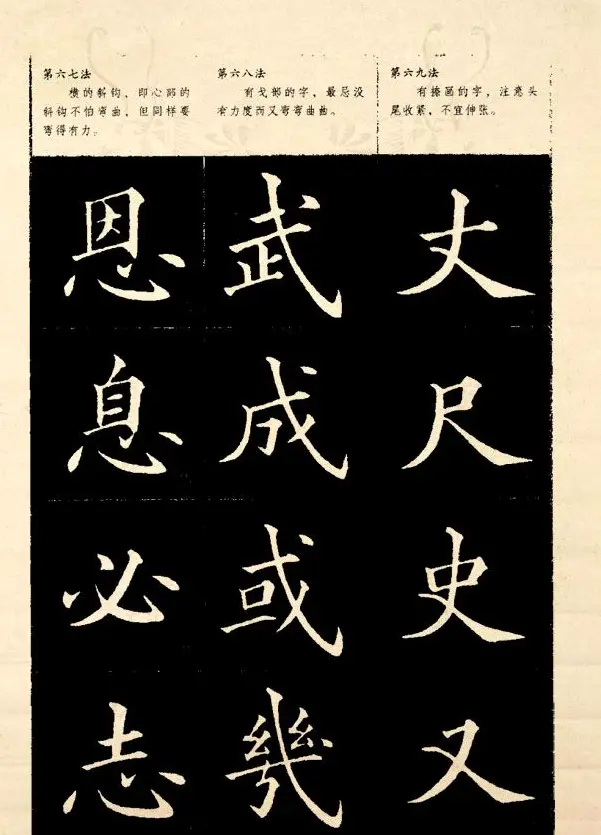 第六七法
横的斜钩，即心部的
斜钩不怕弯曲，但同样要
弯得有力。
第六八法
有戈部的字，最忌没
有力度而又弯弯曲曲。
第六九法
有捺画的字，注意头
尾收紧，不宜伸张。
恩 武 丈
息 成 尺
必 或 史
志 幾 又